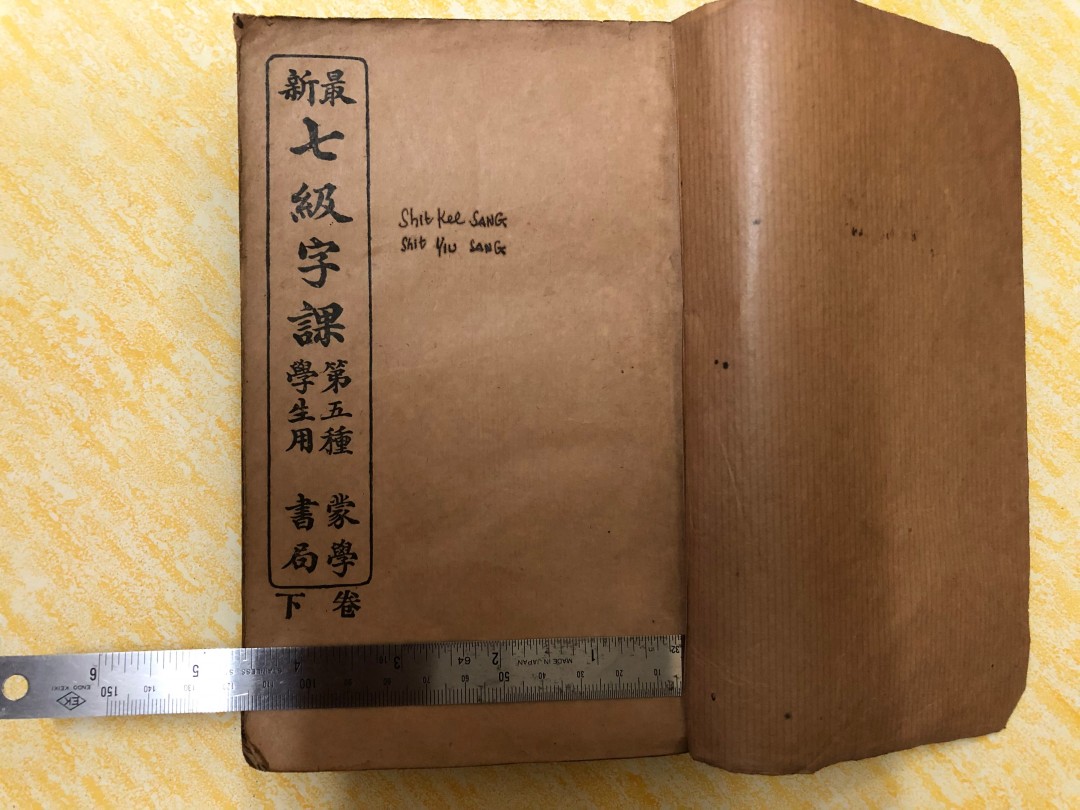 最新
七級字課
第五種
學生用
蒙學
書局
卷下
Shit Kee SANG
Shit YIU SANG
6 5 4 3 2 1
64 32
STAINLESS
MADE IN JAPAN
150 140 130 120 100 70 60 50 40 30 20 10
ENDO KEIKI
EK